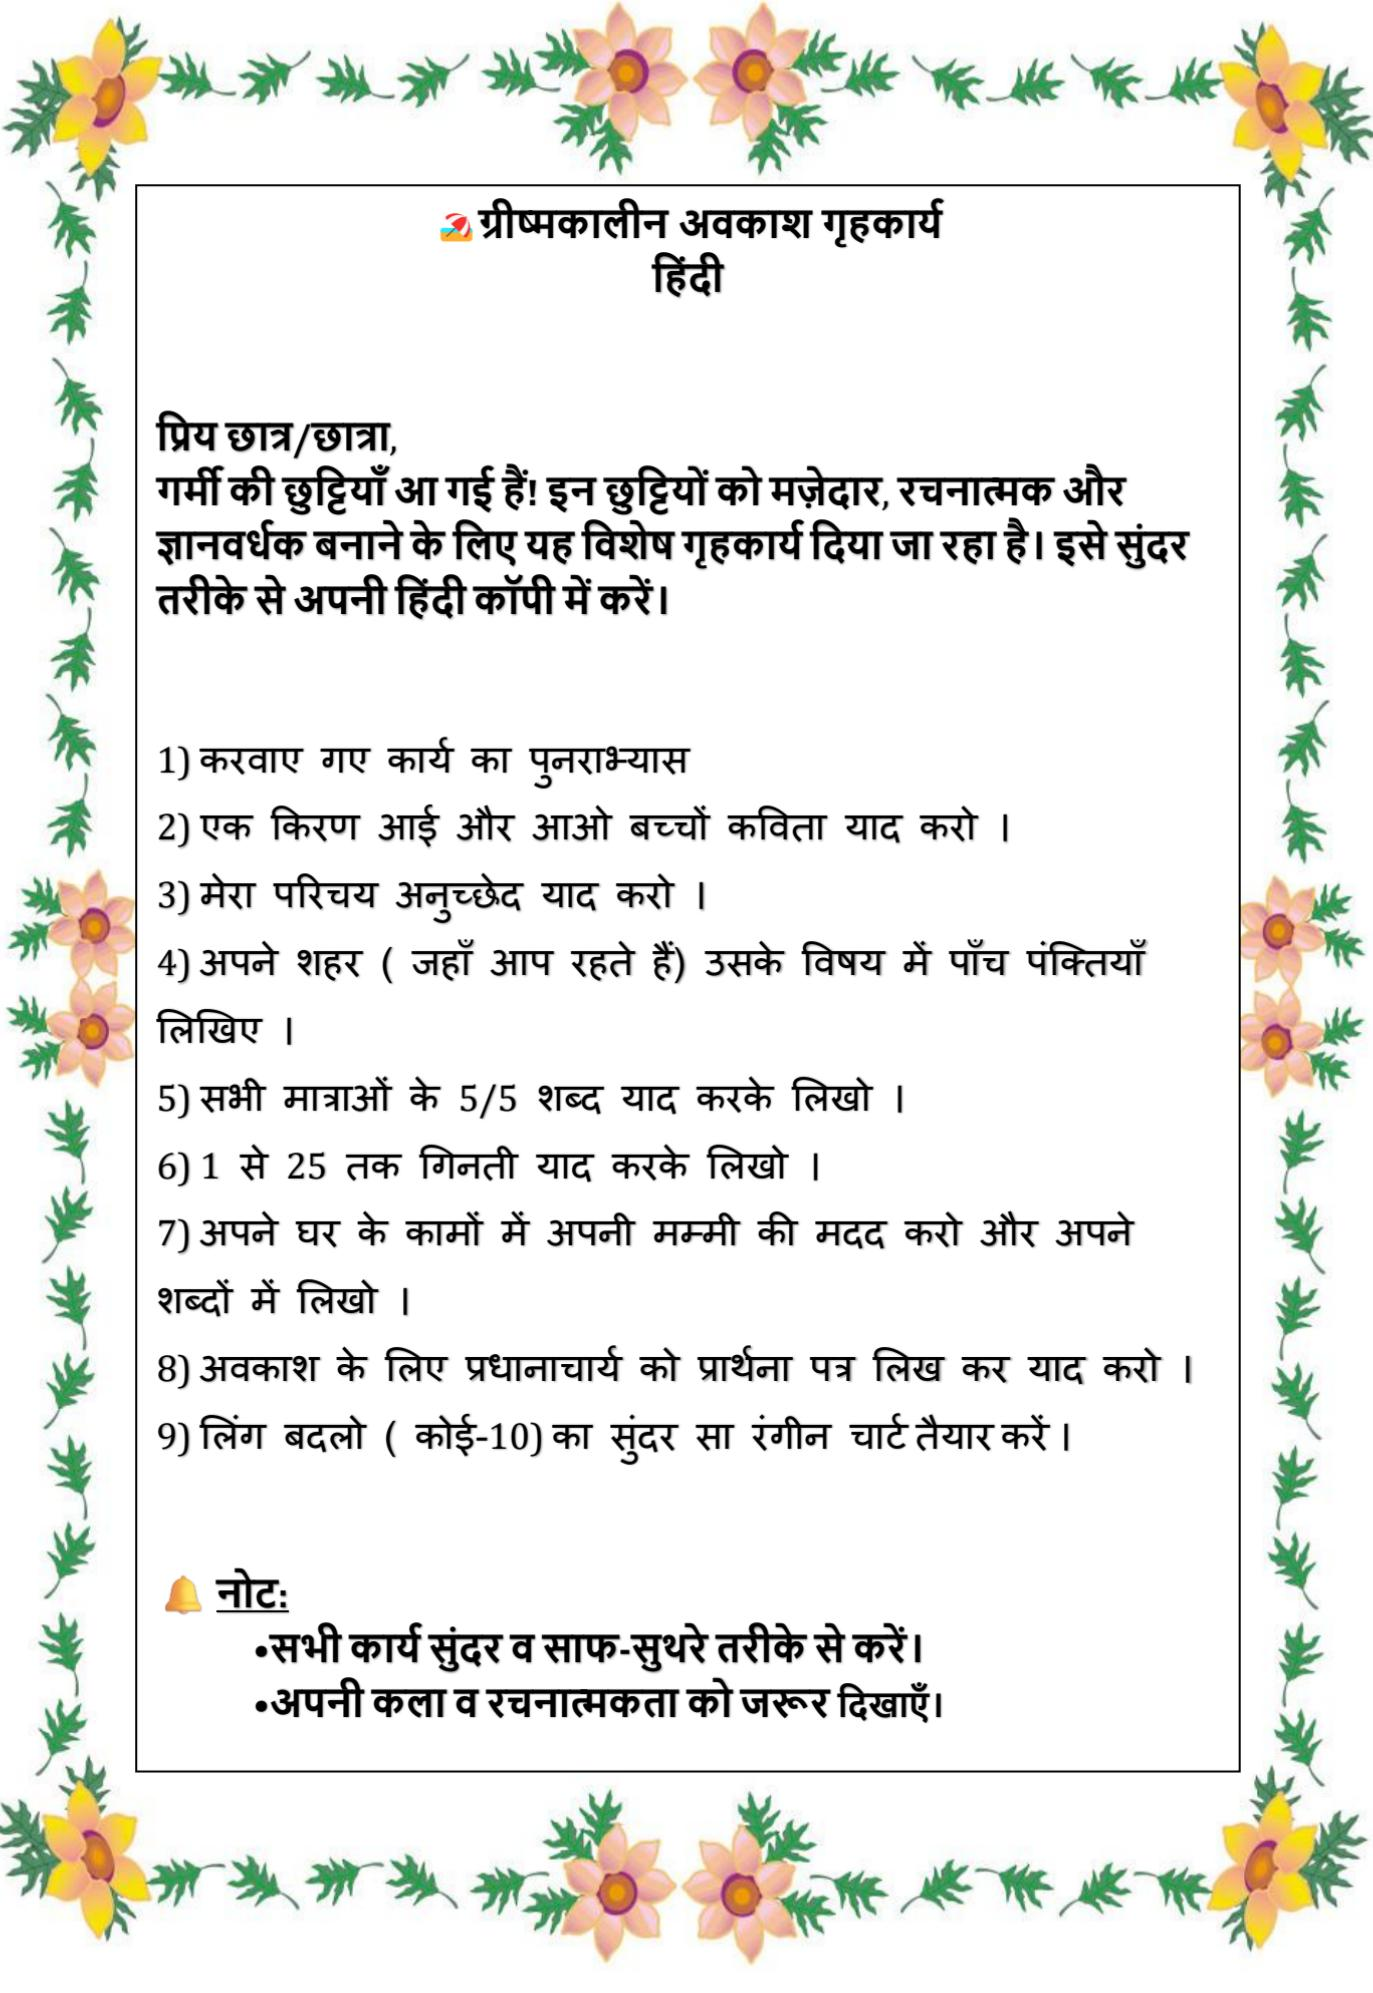 ग्रीष्मकालीन अवकाश गृहकार्य
हिंदी
प्रिय छात्र/छात्रा,
गर्मी की छुट्टियाँ आ गई हैं! इन छुट्टियों को मज़ेदार, रचनात्मक और
ज्ञानवर्धक बनाने के लिए यह विशेष गृहकार्य दिया जा रहा है। इसे सुंदर
तरीके से अपनी हिंदी कॉपी में करें।
1) करवाए गए कार्य का पुनराभ्यास
2) एक किरण आई और आओ बच्चों कविता याद करो ।
3) मेरा परिचय अनुच्छेद याद करो ।
4) अपने शहर ( जहाँ आप रहते हैं) उसके विषय में पाँच पंक्तियाँ
लिखिए ।
5) सभी मात्राओं के 5/5 शब्द याद करके लिखो ।
6) 1 से 25 तक गिनती याद करके लिखो ।
7) अपने घर के कामों में अपनी मम्मी की मदद करो और अपने
शब्दों में लिखो ।
8) अवकाश के लिए प्रधानाचार्य को प्रार्थना पत्र लिख कर याद करो ।
9) लिंग बदलो ( कोई-10) का सुंदर सा रंगीन चार्ट तैयार करें ।
नोट:
•सभी कार्य सुंदर व साफ-सुथरे तरीके से करें।
•अपनी कला व रचनात्मकता को जरूर दिखाएँ।